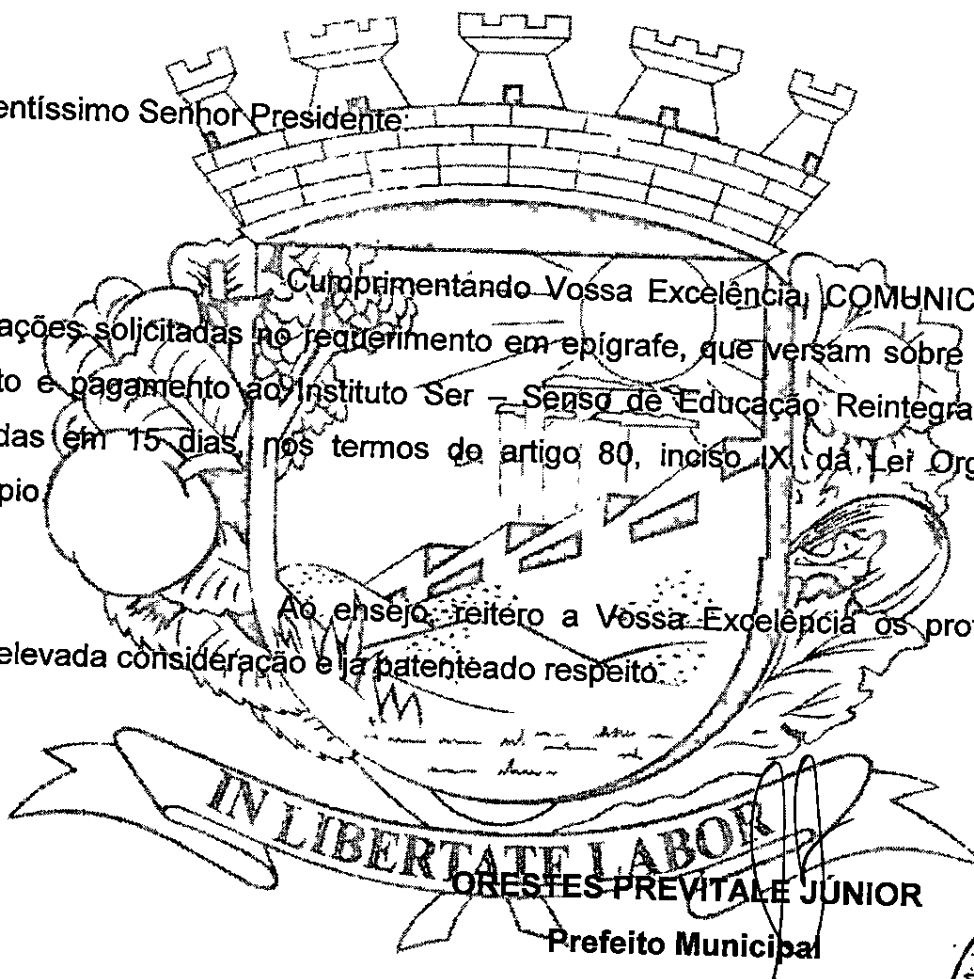 entíssimo Senhor Presidente:
Cumprimentando Vossa Excelência, COMUNIC
ações solicitadas no requerimento em epígrafe, que versam sobre
to e pagamento ao Instituto Ser – Senso de Educação Reintegra
das em 15 dias, nos termos do artigo 80, inciso IX da Lei Org
pio.
Ao ensejo, reitero a Vossa Excelência os pro
elevada consideração e já patenteado respeito.
IN LIBERTATE LABOR
ORESTES PREVITALE JÚNIOR
Prefeito Municipal